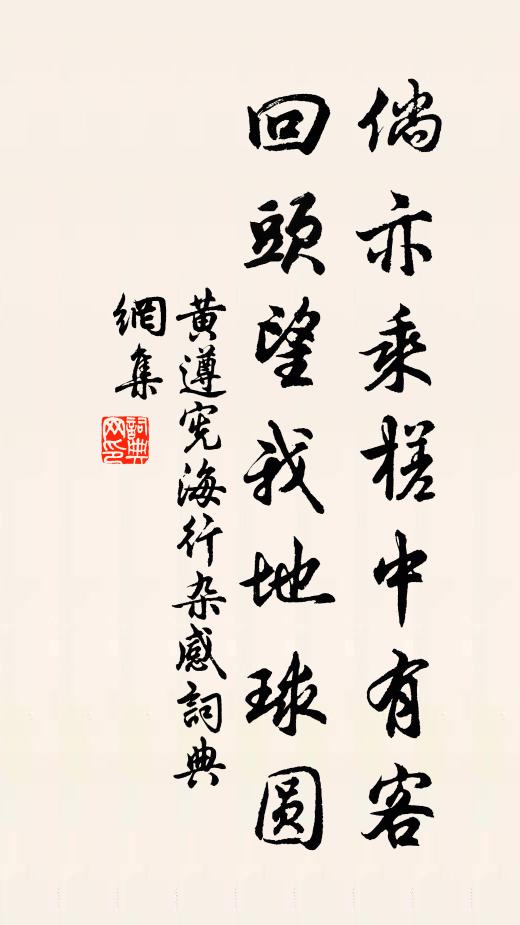 倘亦乘槎中有客
回頭望我地球圆
黄遵宪海行杂感詞典
網集
詞典
网印